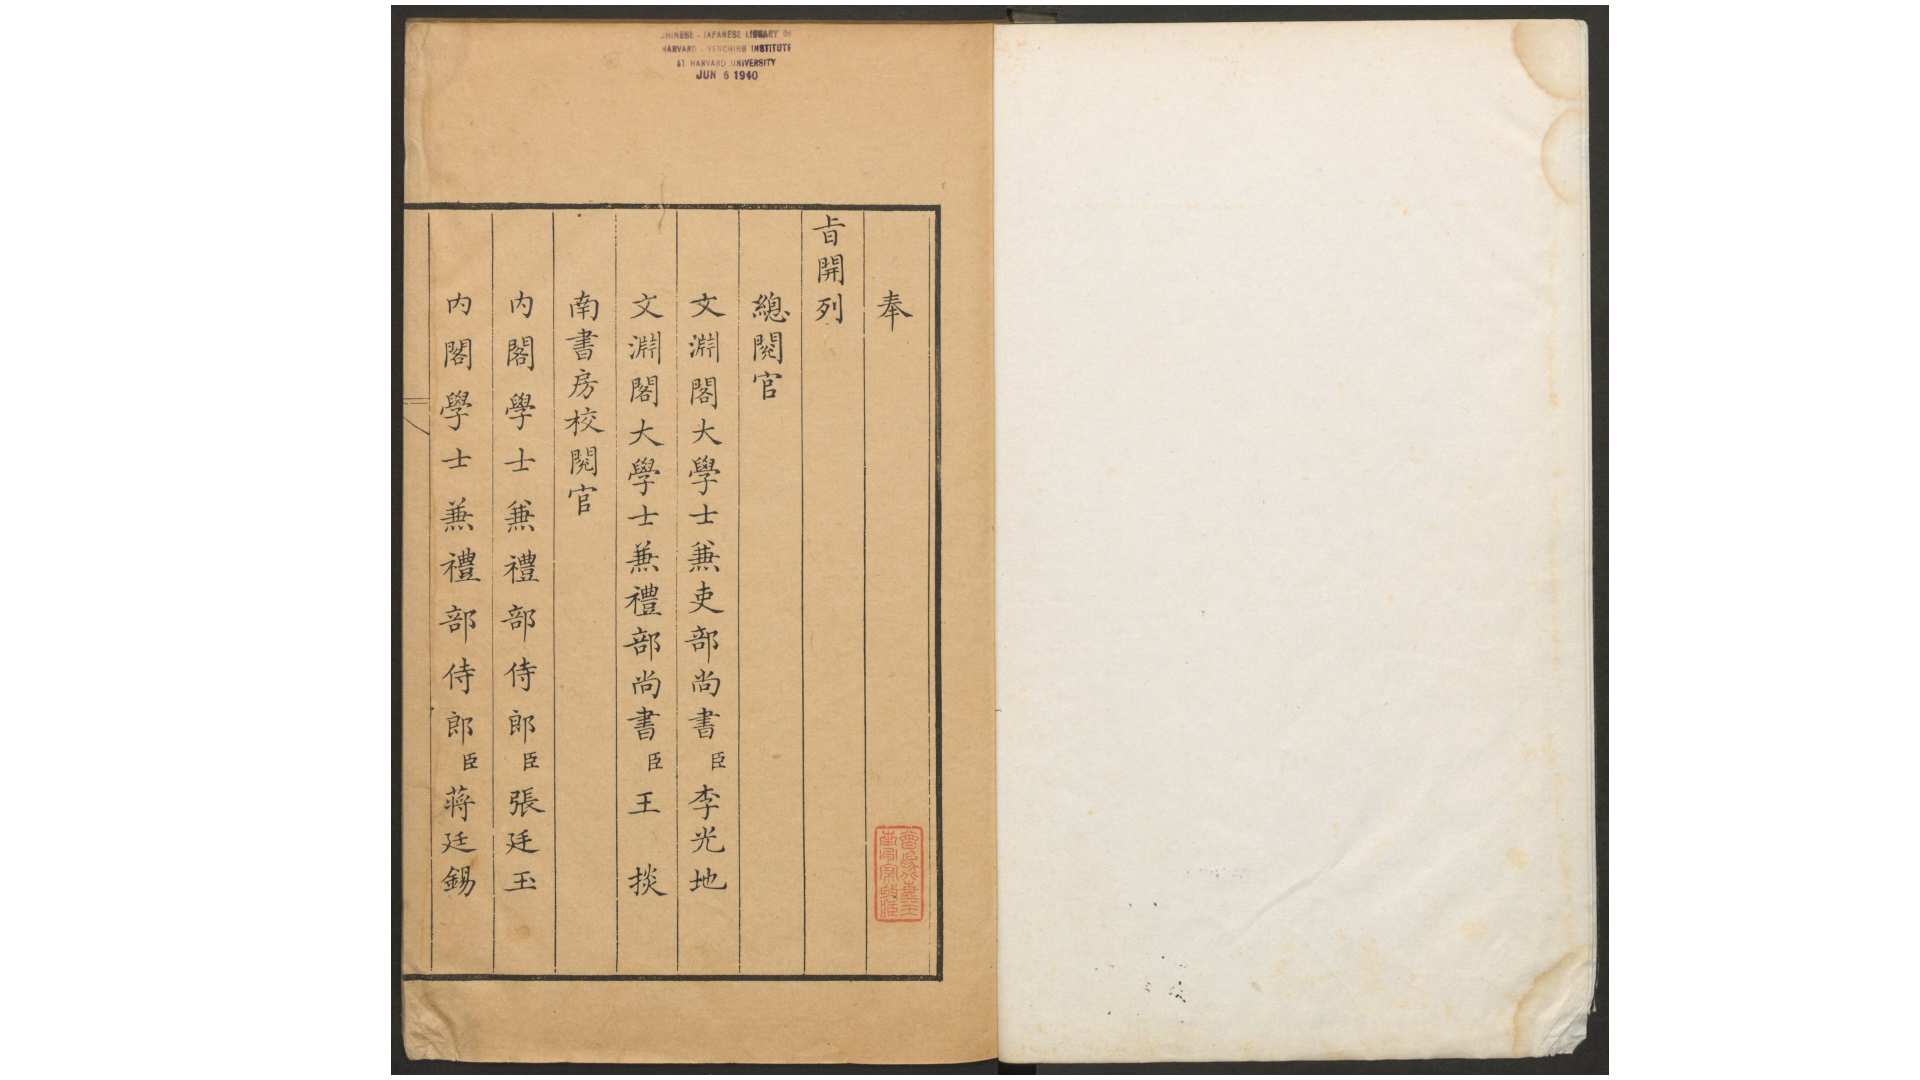 CHINESE - JAPANESE LIBRARY OF
HARVARD - YENCHING INSTITUTE
AT HARVARD UNIVERSITY
JUN 6 1940
奉
旨開列
總閱官
文淵閣大學士兼吏部尚書臣李光地
文淵閣大學士兼禮部尚書臣王掞
南書房校閱官
內閣學士兼禮部侍郎臣張廷玉
內閣學士兼禮部侍郎臣蔣廷錫